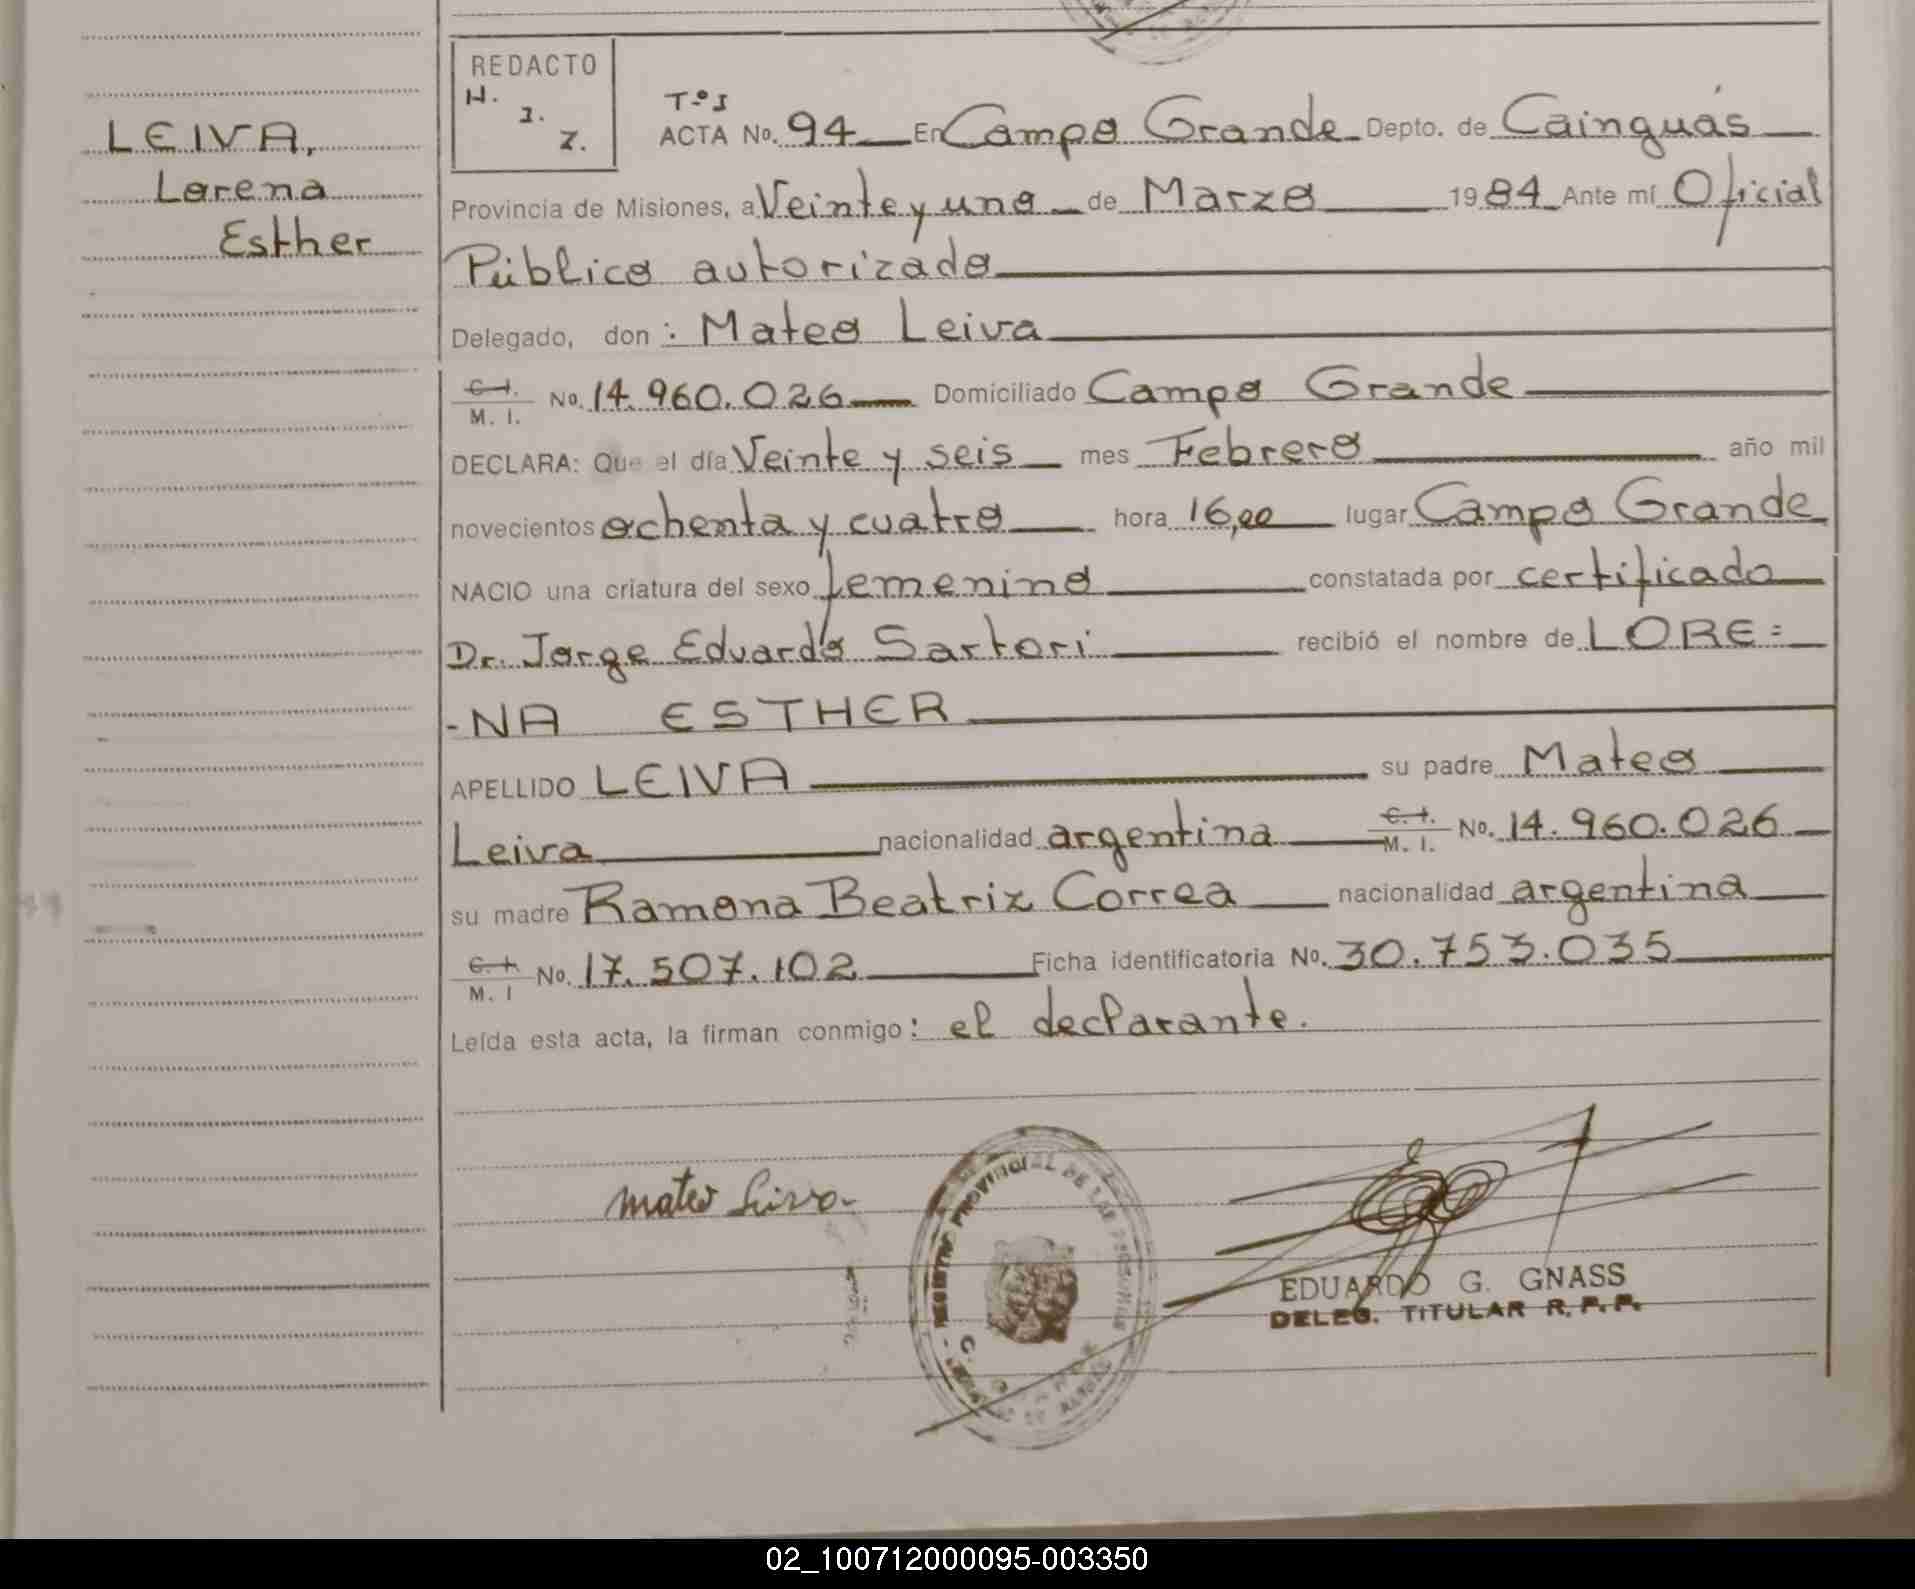 REDACTO
H.
I.
Z.
LEIVA,
Lorena
Esther
Tº I
ACTA No. 94 En Campo Grande Depto. de Cainguás
Provincia de Misiones, a Veinte y uno de Marzo 1984 Ante mí Oficial
Público autorizado
Delegado, don : Mateo Leiva
C. I.
M. I. No. 14.960.026 Domiciliado Campo Grande
DECLARA: Que el día Veinte y seis mes Febrero año mil
novecientos ochenta y cuatro hora 16,00 lugar Campo Grande
NACIO una criatura del sexo femenino constatada por certificado
Dr. Jorge Eduardo Sartori recibió el nombre de LORE=
-NA ESTHER
APELLIDO LEIVA su padre Mateo
Leiva nacionalidad argentina C. I. M. I. No. 14.960.026
su madre Ramona Beatriz Correa nacionalidad argentina
C. I. M. I No. 17.507.102 Ficha identificatoria No. 30.753.035
Leída esta acta, la firman conmigo: el declarante.
Mateo Leiva
REGISTRO PROVINCIAL DE LAS PERSONAS
EDUARDO G. GNASS
DELEG. TITULAR R. P. P.
02_100712000095-003350